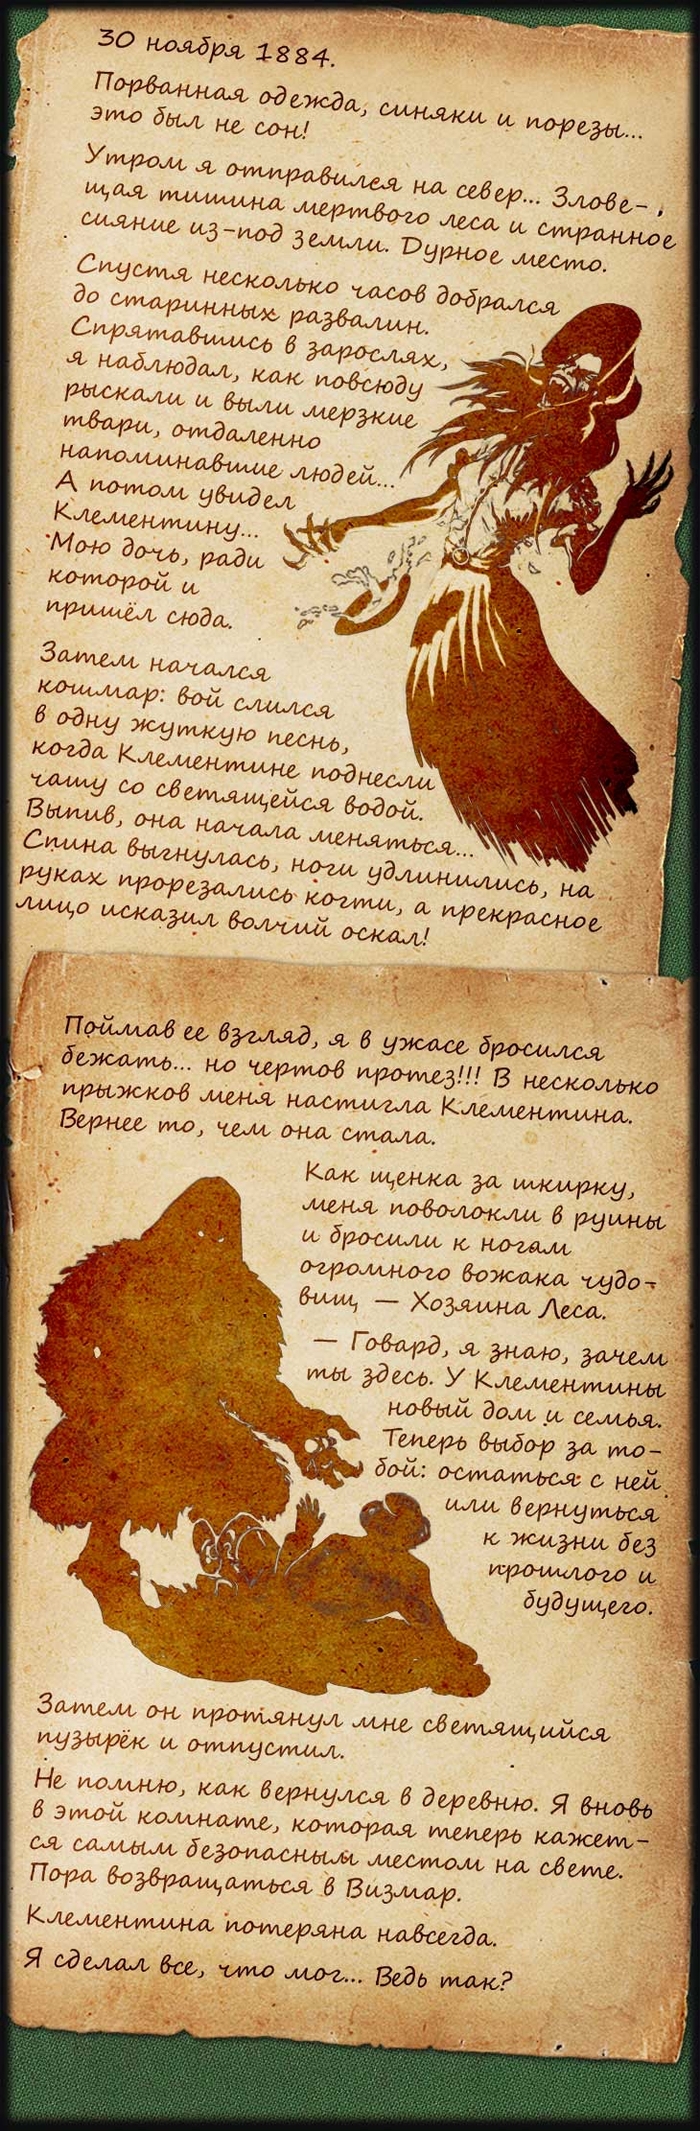 30 ноября 1884.
Порванная одежда, синяки и порезы...
это был не сон!
Утром я отправился на север... Злове-
щая тишина мертвого леса и странное
сияние из-под земли. Дурное место.
Спустя несколько часов добрался
до старинных развалин.
Спрятавшись в зарослях,
я наблюдал, как повсюду
рыскали и выли мерзкие
твари, отдаленно
напоминавшие людей...
А потом увидел
Клементину...
Мою дочь, ради
которой и
пришёл сюда.
Затем начался
кошмар: вой слился
в одну жуткую песнь,
когда Клементине поднесли
чашу со светящейся водой.
Выпив, она начала меняться...
Спина выгнулась, ноги удлинились, на
руках прорезались когти, а прекрасное
лицо исказил волчий оскал!
Поймав ее взгляд, я в ужасе бросился
бежать... но чертов протез!!! В несколько
прыжков меня настигла Клементина.
Вернее то, чем она стала.
Как щенка за шкирку,
меня поволокли в руины
и бросили к ногам
огромного вожака чудо-
вищ — Хозяина Леса.
— Говард, я знаю, зачем
ты здесь. У Клементины
новый дом и семья.
Теперь выбор за то-
бой: остаться с ней
или вернуться
к жизни без
прошлого и
будущего.
Затем он протянул мне светящийся
пузырёк и отпустил.
Не помню, как вернулся в деревню. Я вновь
в этой комнате, которая теперь кажет-
ся самым безопасным местом на свете.
Пора возвращаться в Визмар.
Клементина потеряна навсегда.
Я сделал все, что мог... Ведь так?